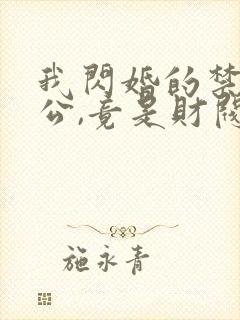 我閃婚的禁
公,竟是財閥
施永青